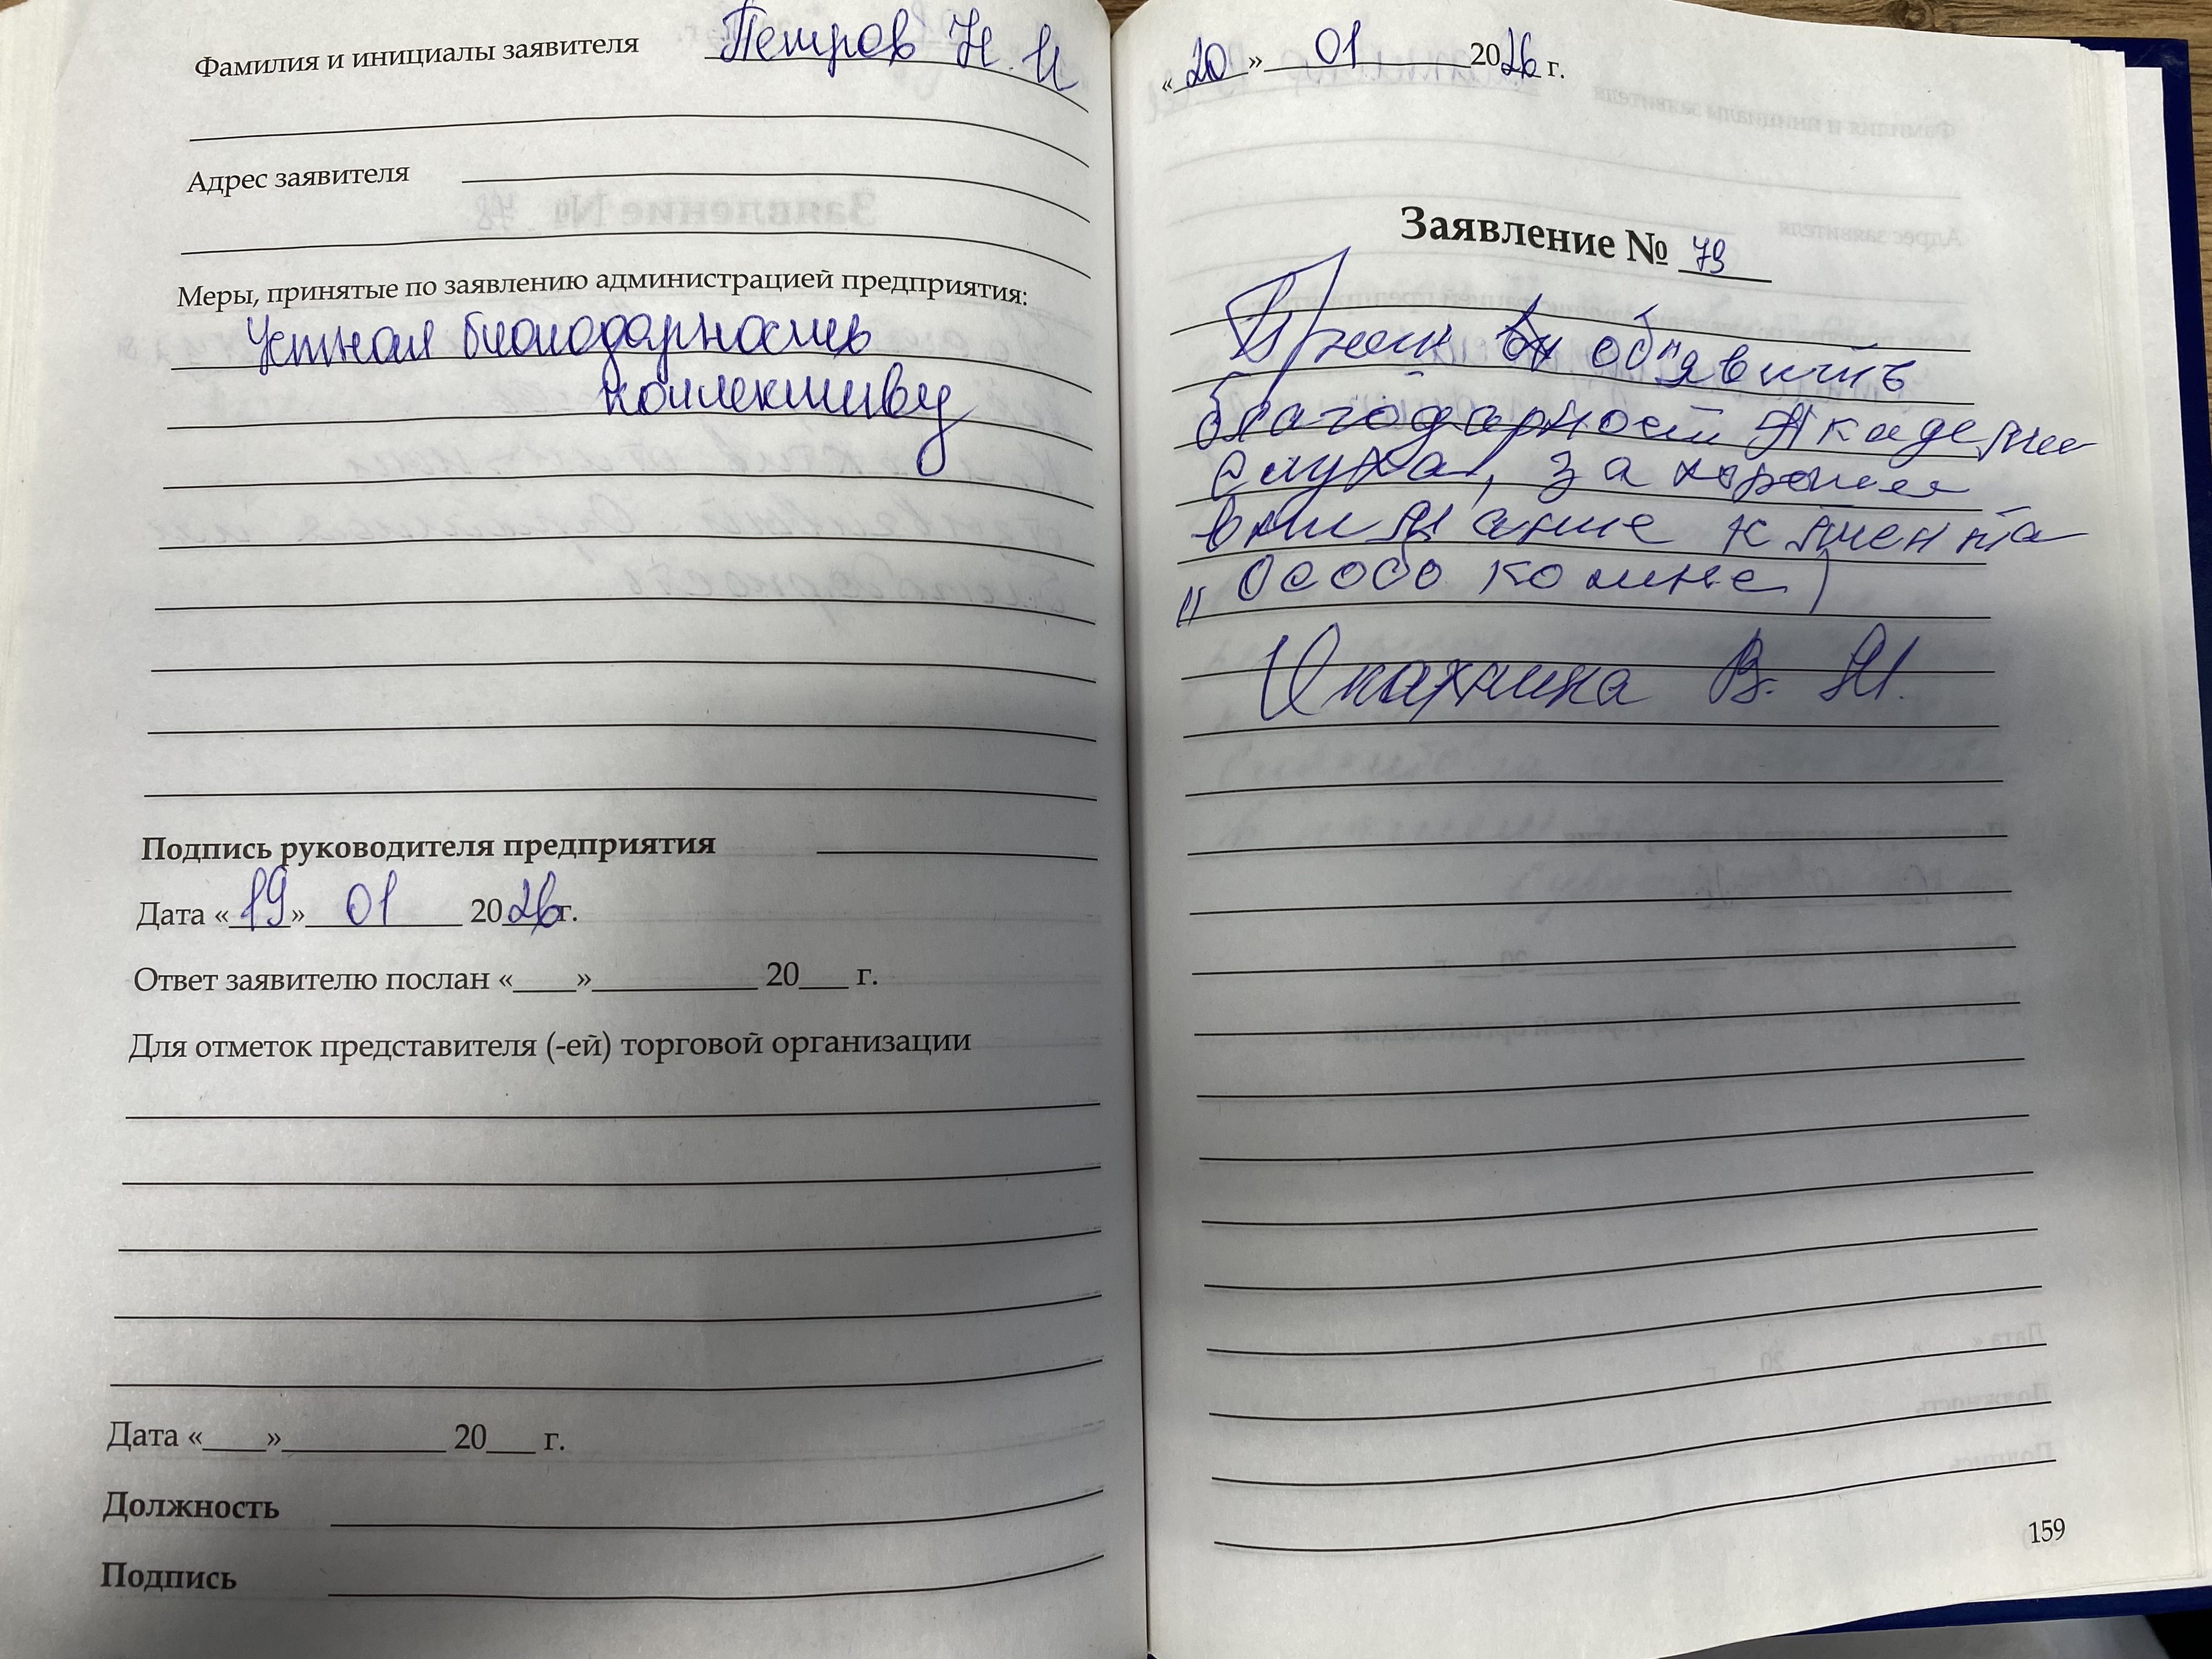 Фамилия и инициалы заявителя Петров Н. И
Адрес заявителя
Меры, принятые по заявлению администрацией предприятия:
Устная благодарность
коллективу
Подпись руководителя предприятия
Дата «19» 01 2026г.
Ответ заявителю послан «____»__________ 20___ г.
Для отметок представителя (-ей) торговой организации
Дата «____»__________ 20___ г.
Должность
Подпись
«20» 01 2026 г.
Заявление № 79
объявить
благодарность Академии
слуха, за хорошее
внимание клиента
особо ко мне)
В.
159